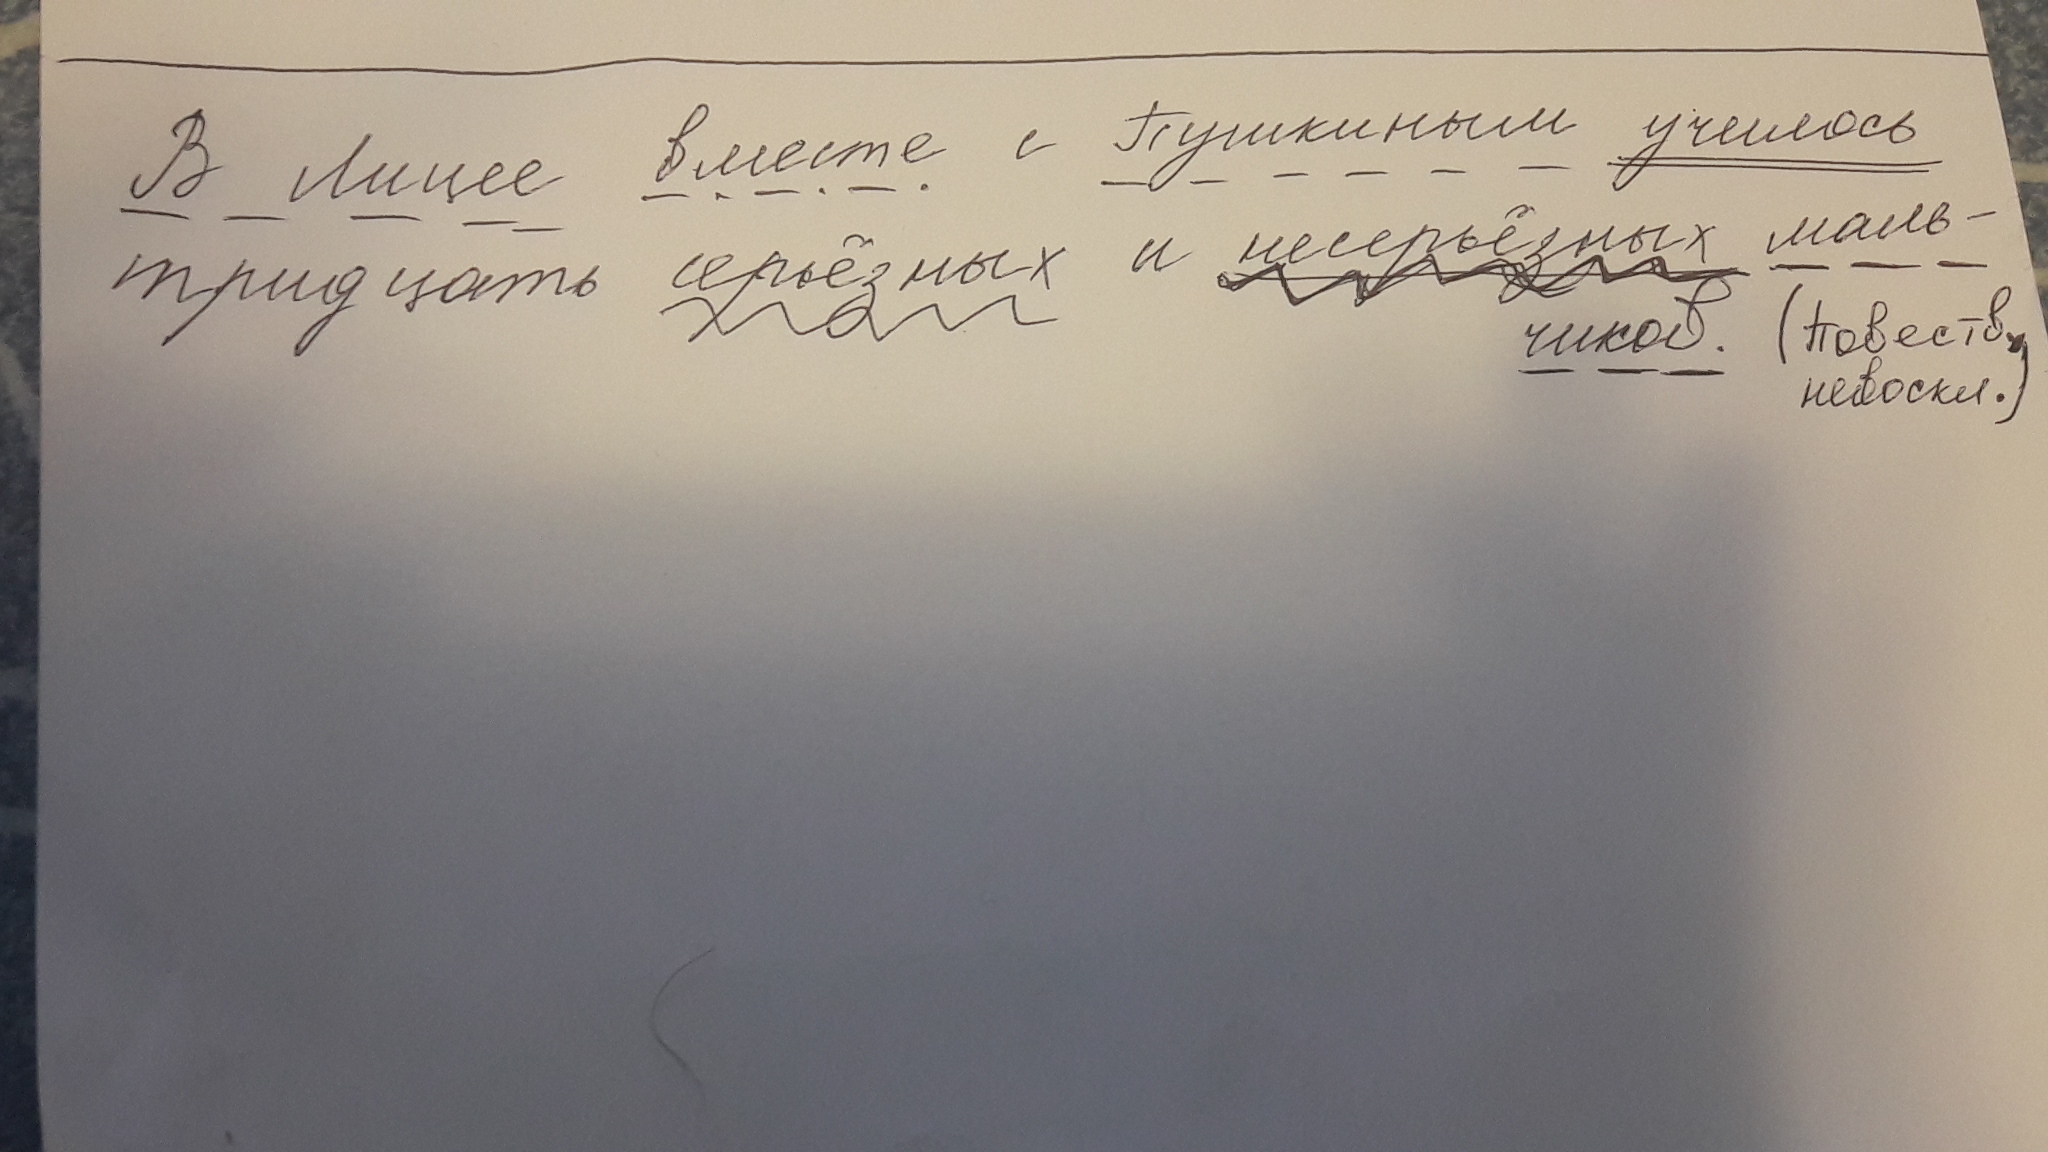 В Лицее вместе с Пушкиным училось
тридцать серьёзных и несерьёзных маль-
чиков. (Повеств.,
невоскл.)